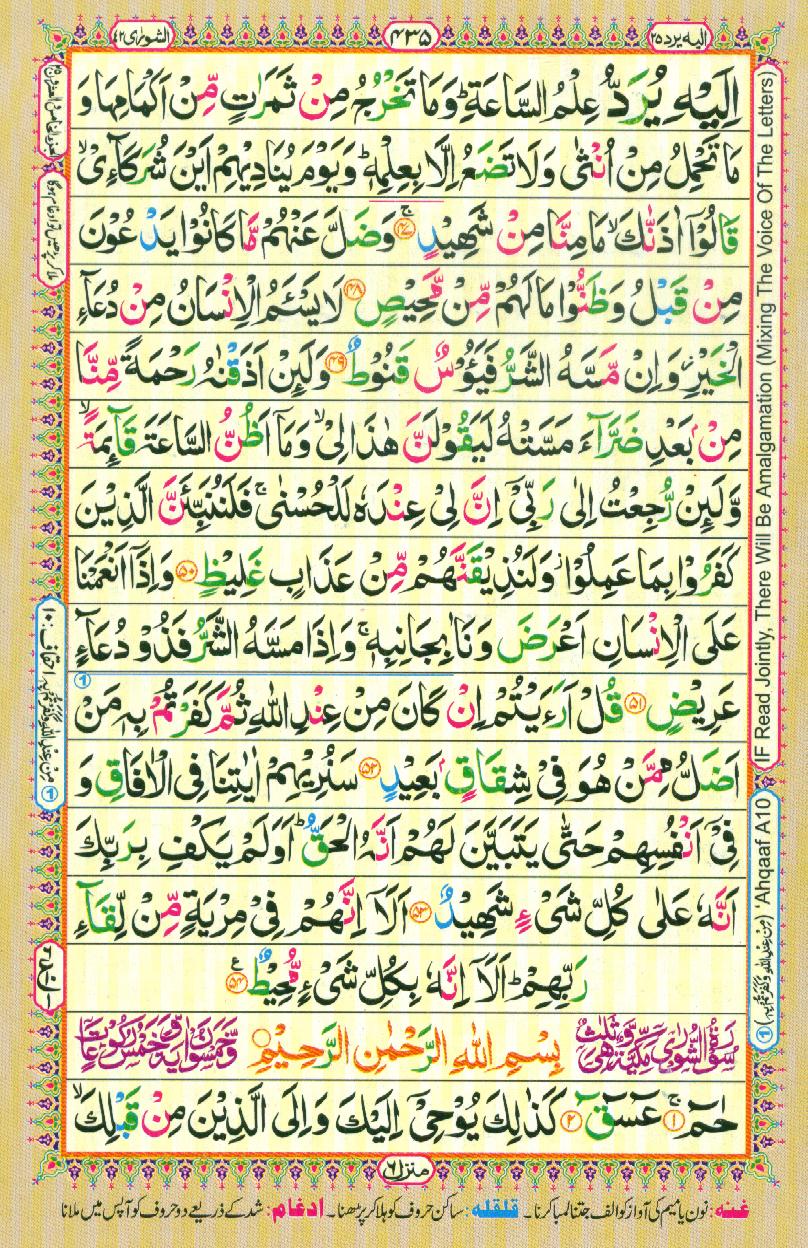 الیه یرد ۲۵
۴۳۵
الشورٰی ۴۲
اِلَیْهِ یُرَدُّ عِلْمُ السَّاعَةِؕ وَمَا تَخْرُجُ مِنْ ثَمَرٰتٍ مِّنْ اَكْمَامِهَا وَ
مَا تَحْمِلُ مِنْ اُنْثٰی وَلَا تَضَعُ اِلَّا بِعِلْمِهٖؕ وَیَوْمَ یُنَادِیْهِمْ اَیْنَ شُرَكَآءِیْۙ
قَالُوْۤا اٰذَنّٰكَۙ مَا مِنَّا مِنْ شَهِیْدٍۚ ﴿۴۷﴾ وَضَلَّ عَنْهُمْ مَّا كَانُوْا یَدْعُوْنَ
مِنْ قَبْلُ وَظَنُّوْا مَا لَهُمْ مِّنْ مَّحِیْصٍ ﴿۴۸﴾ لَا یَسْـَٔمُ الْاِنْسَانُ مِنْ دُعَآءِ
الْخَیْرِؗ وَاِنْ مَّسَّهُ الشَّرُّ فَیَـُٔوْسٌ قَنُوْطٌ ﴿۴۹﴾ وَلَىِٕنْ اَذَقْنٰهُ رَحْمَةً مِّنَّا
مِنْۢ بَعْدِ ضَرَّآءَ مَسَّتْهُ لَیَقُوْلَنَّ هٰذَا لِیْۙ وَمَاۤ اَظُنُّ السَّاعَةَ قَآىِٕمَةًۙ
وَّلَىِٕنْ رُّجِعْتُ اِلٰی رَبِّیْۤ اِنَّ لِیْ عِنْدَهٗ لَلْحُسْنٰیۚ فَلَنُنَبِّئَنَّ الَّذِیْنَ
كَفَرُوْا بِمَا عَمِلُوْاؗ وَلَنُذِیْقَنَّهُمْ مِّنْ عَذَابٍ غَلِیْظٍ ﴿۵۰﴾ وَاِذَاۤ اَنْعَمْنَا
عَلَی الْاِنْسَانِ اَعْرَضَ وَنَاٰ بِجَانِبِهٖۚ وَاِذَا مَسَّهُ الشَّرُّ فَذُوْ دُعَآءٍ
عَرِیْضٍ ﴿۵۱﴾ قُلْ اَرَءَیْتُمْ اِنْ كَانَ مِنْ عِنْدِ اللّٰهِ ثُمَّ كَفَرْتُمْ بِهٖ مَنْ
اَضَلُّ مِمَّنْ هُوَ فِیْ شِقَاقٍۭ بَعِیْدٍ ﴿۵۲﴾ سَنُرِیْهِمْ اٰیٰتِنَا فِی الْاٰفَاقِ وَ
فِیْۤ اَنْفُسِهِمْ حَتّٰی یَتَبَیَّنَ لَهُمْ اَنَّهُ الْحَقُّؕ اَوَلَمْ یَكْفِ بِرَبِّكَ
اَنَّهٗ عَلٰی كُلِّ شَیْءٍ شَهِیْدٌ ﴿۵۳﴾ اَلَاۤ اِنَّهُمْ فِیْ مِرْیَةٍ مِّنْ لِّقَآءِ
رَبِّهِمْؕ اَلَاۤ اِنَّهٗ بِكُلِّ شَیْءٍ مُّحِیْطٌ ﴿۵۴﴾
سُوْرَةُ الشُّوْرٰی مَكِّیَّةٌ وَّهِیَ ثَلٰثٌ وَّخَمْسُوْنَ اٰیَةً وَّخَمْسُ رُكُوْعَاتٍ
بِسْمِ اللّٰهِ الرَّحْمٰنِ الرَّحِیْمِ
حٰمٓ ﴿۱﴾ عٓسٓقٓ ﴿۲﴾ كَذٰلِكَ یُوْحِیْۤ اِلَیْكَ وَاِلَی الَّذِیْنَ مِنْ قَبْلِكَۙ
منزل ۶
غنه: نون یا میم کی آواز کو الف جتنا لمبا کرنا۔ قلقله: ساکن حروف کو ہلا کر پڑھنا۔ ادغام: شد کے ذریعے دو حروف کو آپس میں ملانا
IF Read Jointly, There Will Be Amalgamation (Mixing The Voice Of The Letters)
① (مِنْ عِنْدِ اللّٰهِ وَكَفَرْتُمْ بِهٖ) 'Ahqaaf A10
① مِنْ عِنْدِ اللّٰهِ وَكَفَرْتُمْ بِهٖ احقاف: ۱۰